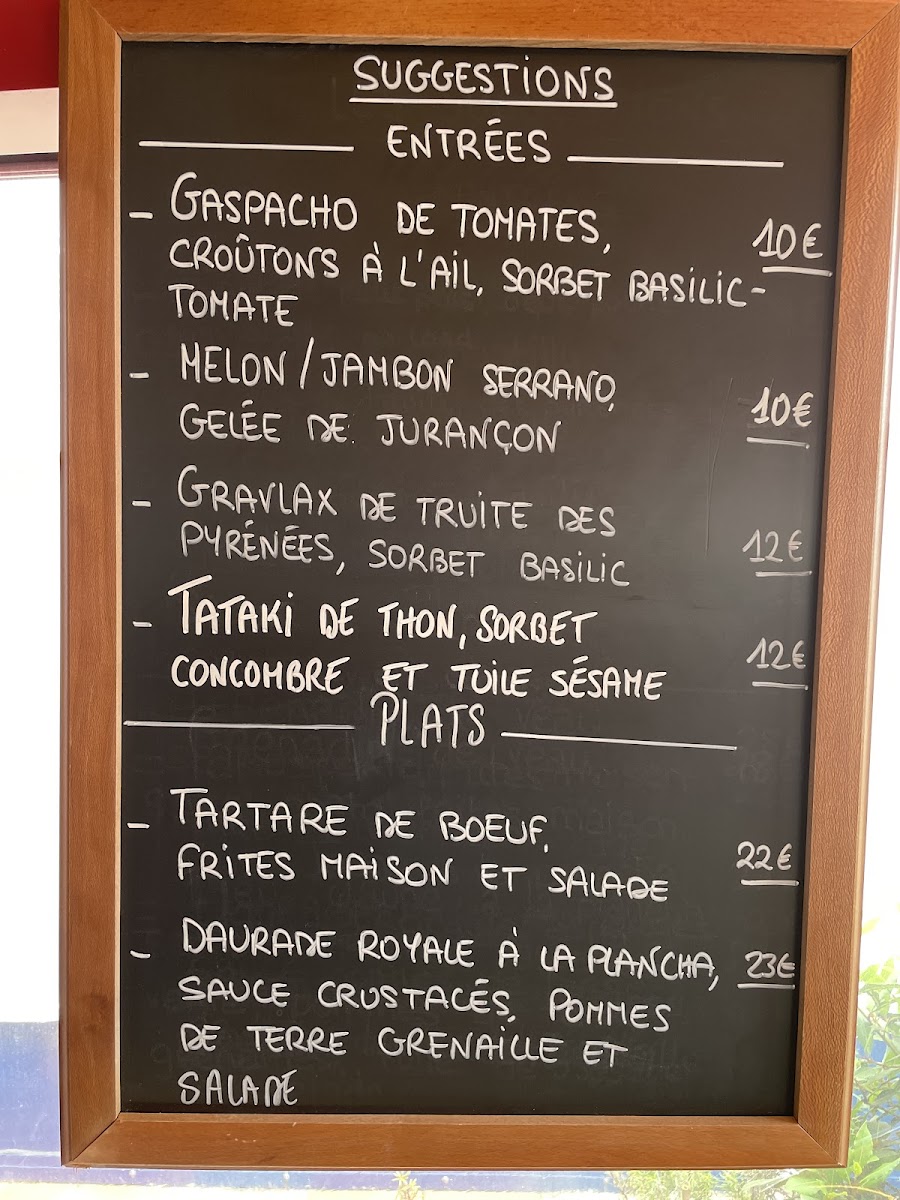 SUGGESTIONS
ENTRÉES
- GASPACHO DE TOMATES, 10€
CROÛTONS À L'AIL, SORBET BASILIC-
TOMATE
- MELON / JAMBON SERRANO, 10€
GELÉE DE JURANÇON
- GRAVLAX DE TRUITE DES
PYRÉNÉES, SORBET BASILIC 12€
- TATAKI DE THON, SORBET
CONCOMBRE ET TUILE SÉSAME 12€
PLATS
- TARTARE DE BOEUF,
FRITES MAISON ET SALADE 22€
- DAURADE ROYALE À LA PLANCHA, 23€
SAUCE CRUSTACÉS, POMMES
DE TERRE GRENAILLE ET
SALADE